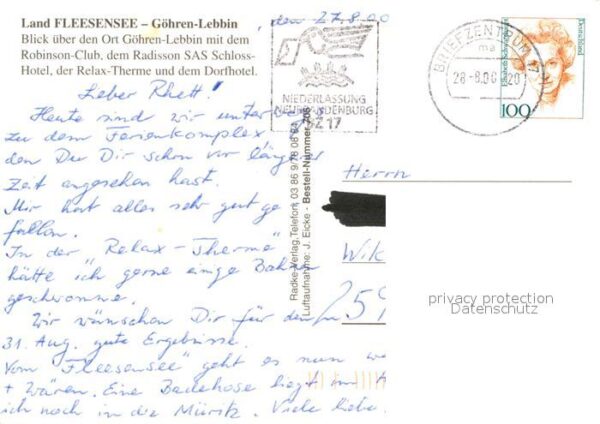 Land FLEESENSEE – Göhren-Lebbin
Blick über den Ort Göhren-Lebbin mit dem
Robinson-Club, dem Radisson SAS Schloss-
Hotel, der Relax-Therme und dem Dorfhotel.
, den 27.8.00
Lieber Rhett!
Heute sind wir unterwegs
zu dem Ferienkomplex
den Du Dir schon vor länger
Zeit angesehen hast.
Mir hat alles sehr gut ge
fallen.
In der "Relax-Therme"
hätte ich gerne einge Bahnen
geschwomme.
Wir wünschen Dir für den
31. Aug. gute Ergebnisse.
Vom "Fleesensee" geht es nun
+ Wären. Eine Badehose liegt im
ich noch in die Müritz. Viele liebe
Radke-Verlag, Telefon 03 86 9/78 08 84
Luftaufnahme: J. Eicke - Bestell-Nummer 208
NIEDERLASSUNG
NEUBRANDENBURG
BZ 17
BRIEFZENTRUM 17
ma
28-8.00-20
Deutschland
100
Herrn
Wik
259
privacy protection
Datenschutz